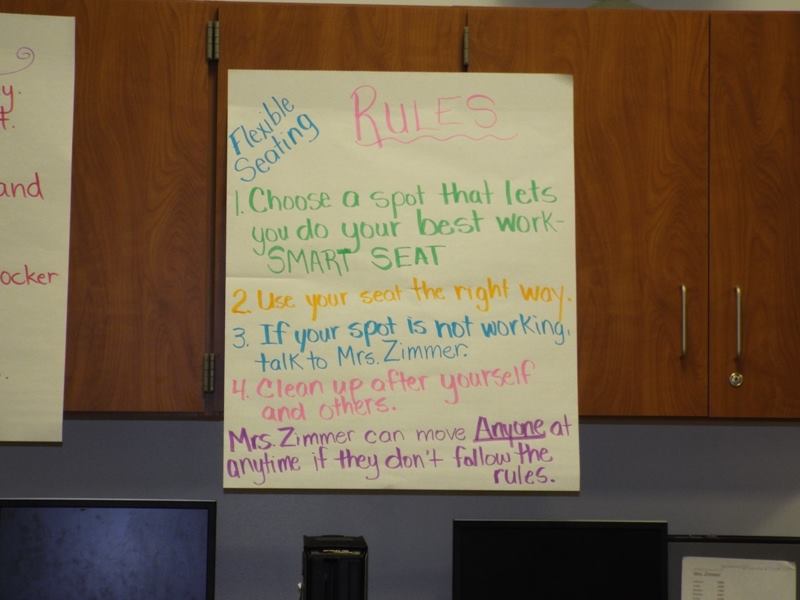 y.
t.
and
ocker
Flexible
Seating
RULES
1. Choose a spot that lets
you do your best work-
SMART SEAT
2. Use your seat the right way.
3. If your spot is not working,
talk to Mrs. Zimmer.
4. Clean up after yourself
and others.
Mrs. Zimmer can move Anyone at
anytime if they don't follow the
rules.